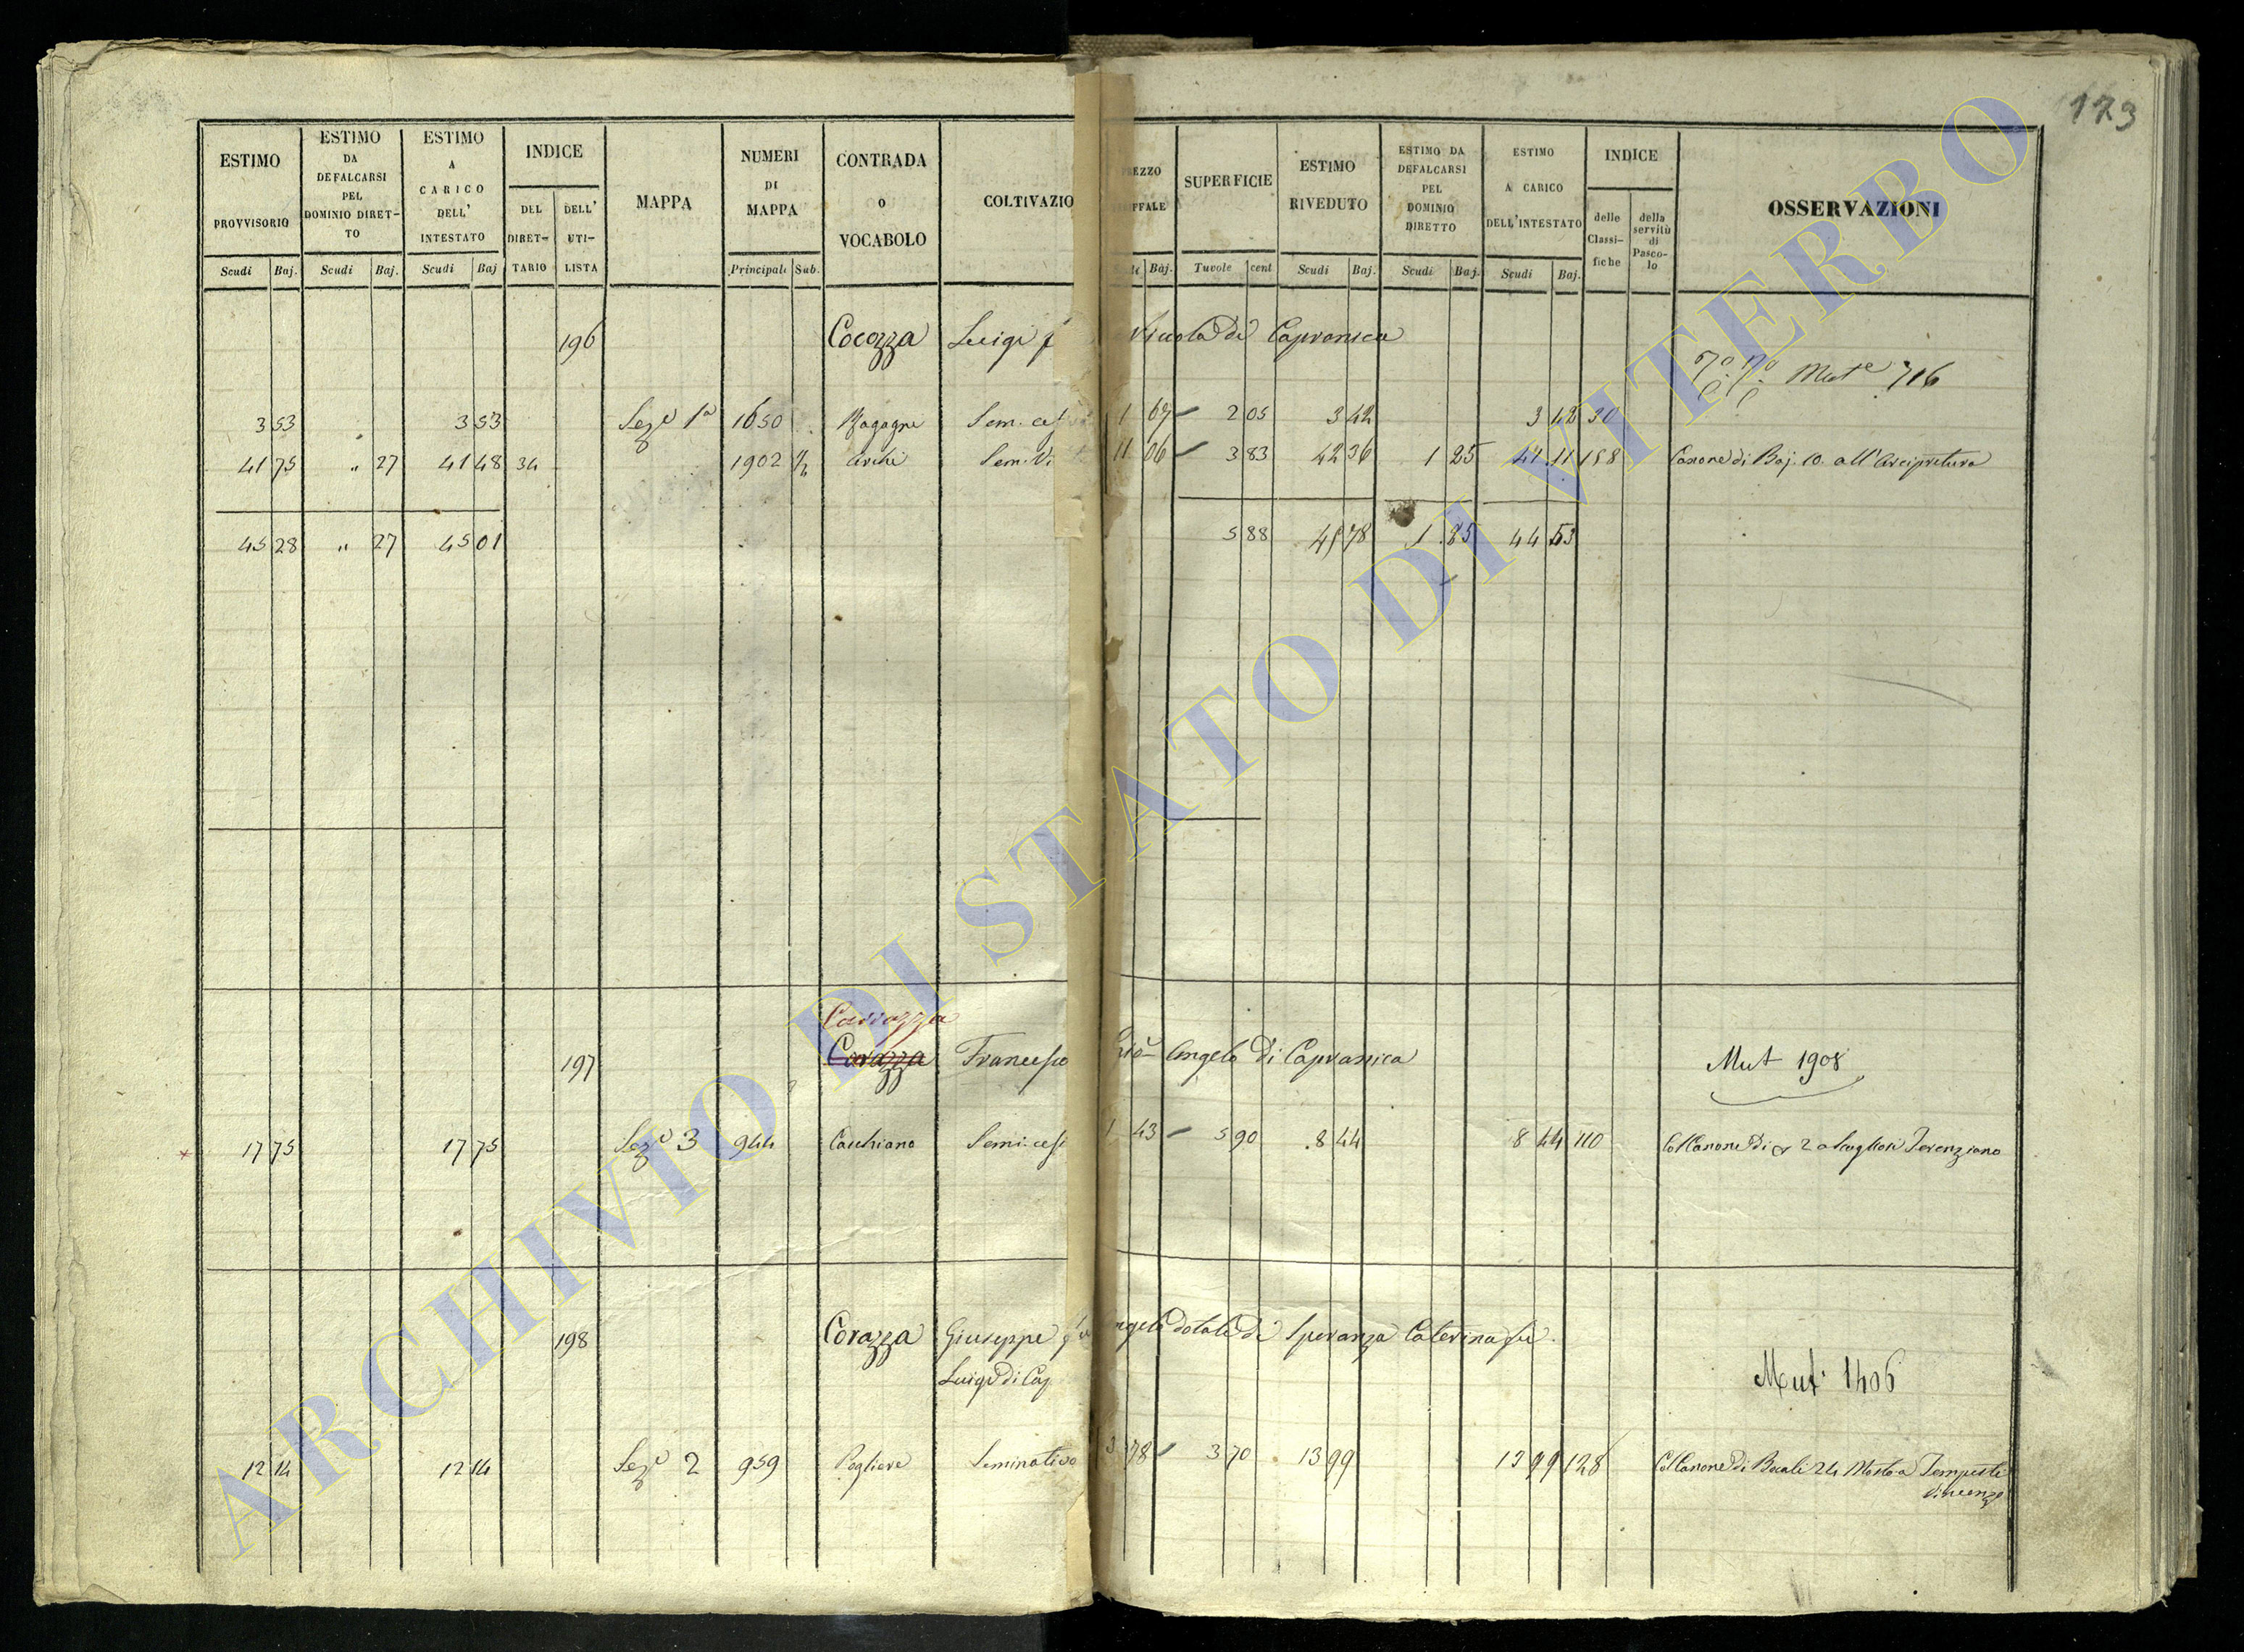 173
ESTIMO PROVVISORIO Scudi Baj.
ESTIMO DA DEFALCARSI PEL DOMINIO DIRET-TO Scudi Baj.
ESTIMO A CARICO DELL' INTESTATO Scudi Baj
INDICE DEL DIRET-TARIO DELL' UTI-LISTA
MAPPA
NUMERI DI MAPPA Principale Sub.
CONTRADA O VOCABOLO
COLTIVAZIO
Baj.
SUPERFICIE Tavole cent
ESTIMO RIVEDUTO Scudi Baj.
ESTIMO DA DEFALCARSI PEL DOMINIO DIRETTO Scudi Baj.
ESTIMO A CARICO DELL'INTESTATO Scudi Baj.
INDICE delle Classi-fiche della servitù di Pasco-lo
OSSERVAZIONI
196 Cocozza Luigi Nicola di Capranica
Mute 716
3 53 3 53 Seze 1a 1650 Sem. 1 67 2 05 3 42 3 42 30
41 75 " 27 41 48 34 1902 1/2 Sem. Vi 11 06 3 83 42 36 1 25 41 11 188 Canone di Baj. 10. all'Arcipretura
45 28 " 27 45 01 5 88 45 78 1 25 44 53
Carrozza
197 Corazza Francesco Angelo di Capranica
Mut 1908
17 75 17 75 Seze 3 944 Cacchiano Semi. 43 5 90 8 44 8 44 110 Col Canone di 2 a Terenziano
198 Corazza Giuseppe ngelo dotale di Speranza Caterina fu
Luigi di Cap
Mut 1406
12 14 12 14 Seze 2 959 Pogliere Seminativo 3 78 3 70 13 99 13 99 128 Col Canone di Bocali 24 Mosto a Tempesti
Vincenzo
ARCHIVIO DI STATO DI VITERBO